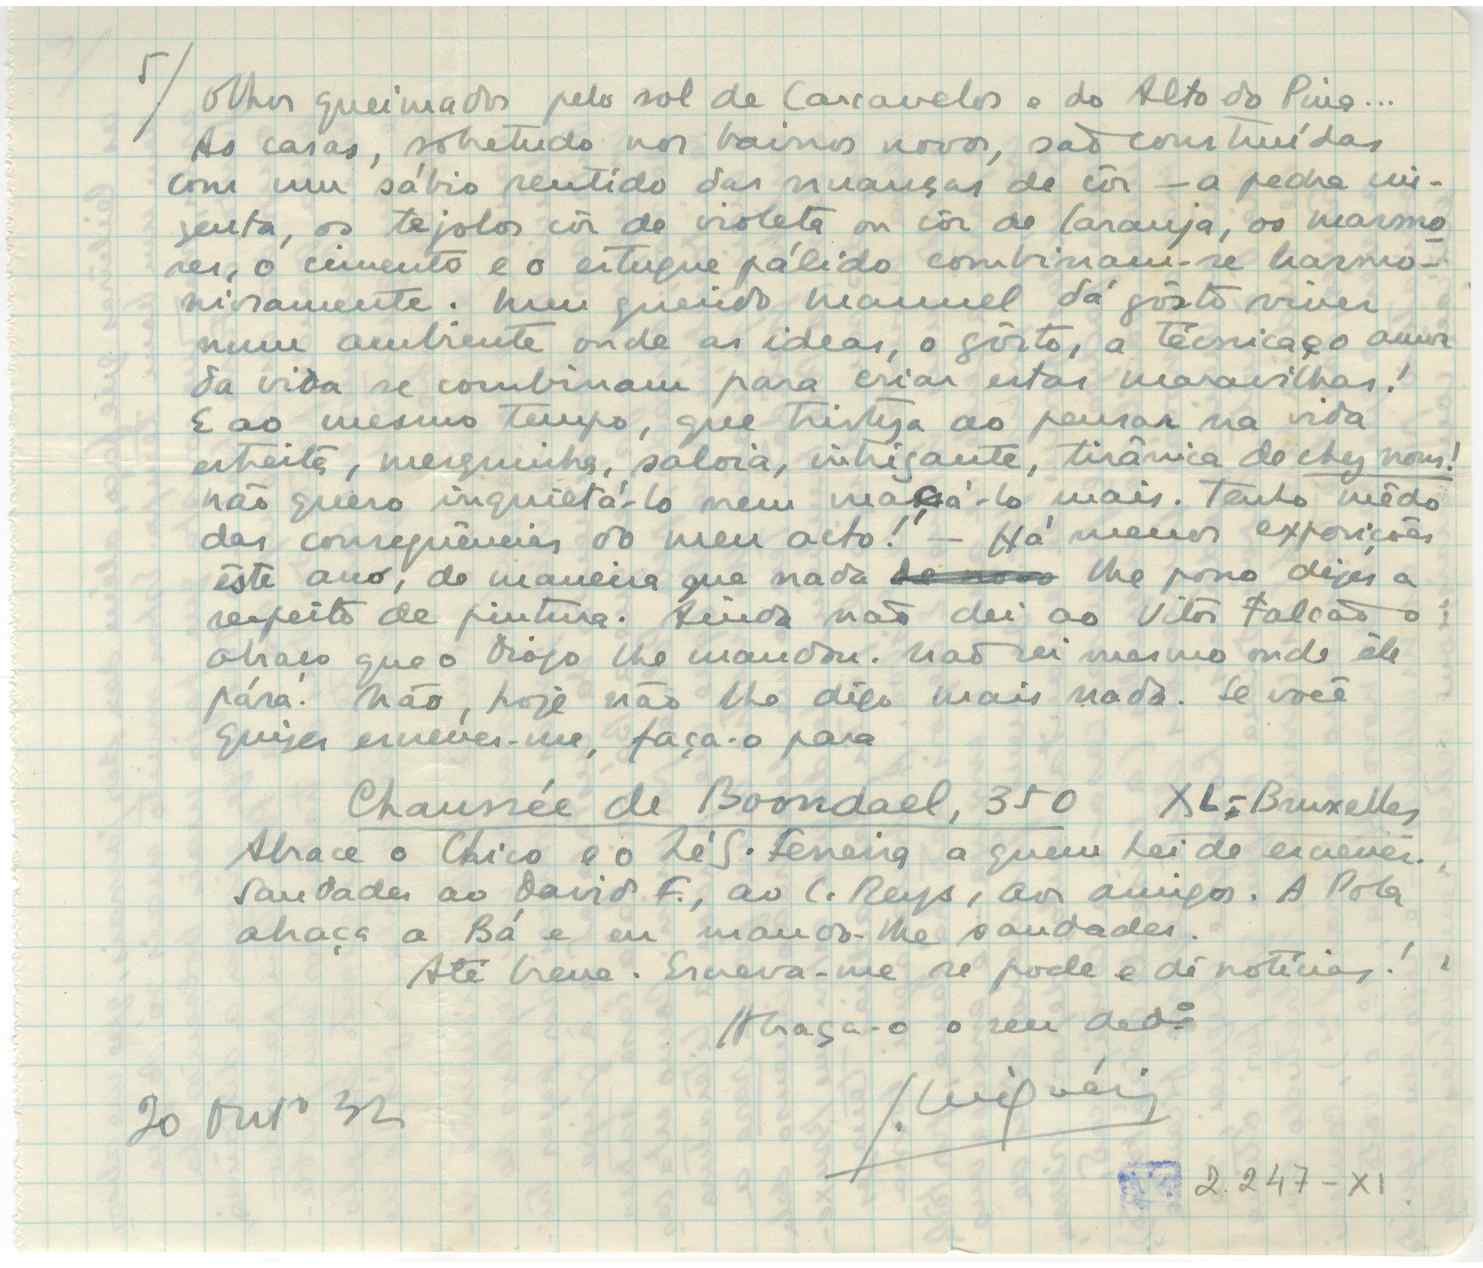 5/
Olhos queimados pelo sol de Carcavelos e do Alto do Pina...
As casas, sobretudo nos bairros novos, são construídas
com um sábio sentido das nuanças de côr — a pedra cin-
zenta, os tejolos côr de violeta ou côr de laranja, os marmo
res, o cimento e o estuque pálido combinam-se harmo-
niosamente. Meu querido Manuel dá gôsto viver
num ambiente onde as ideas, o gôsto, a técnica e o amor
da vida se combinam para criar estas maravilhas!
E ao mesmo tempo, que tristeza ao pensar na vida
estreita, mesquinha, saloia, intrigante, tirânica de chez nous!
Não quero inquietá-lo nem maçá-lo mais. Tenho mêdo
das consequências do meu acto! — Há menos exposições
êste ano, de maneira que nada de novo lhe posso dizer a
respeito de pintura. Ainda não dei ao Vitor Falcão o
abraço que o Diogo lhe mandou. Não sei mesmo onde êle
pára! Não, hoje não lhe digo mais nada. Se você
quizer escrever-me, faça-o para
Chaussée de Boondael, 350 XL - Bruxelles
Abrace o Chico e o Zé G. Ferreira a quem hei de escrever.
Saudades ao David F., ao C. Reys, aos amigos. A Pola
abraça a Bá e eu mando-lhe saudades.
Até breve. Escreva-me se pode e dê notícias!
Abraça-o o seu dedº
J. Rodrigues Miguéis
20 Outº 32
2.247-XI